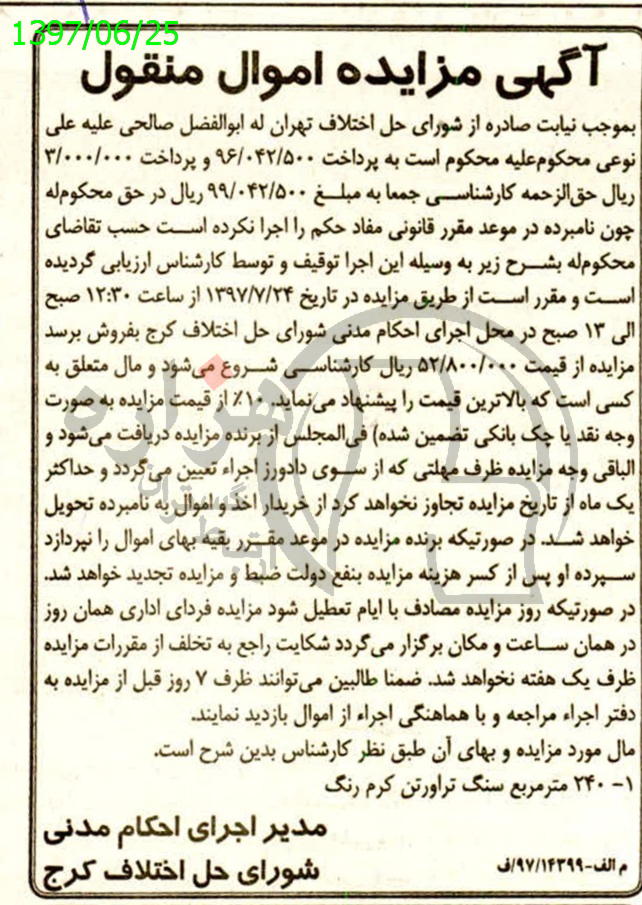 1397/06/25
آگهی مزایده اموال منقول
بموجب نیابت صادره از شورای حل اختلاف تهران له ابوالفضل صالحی علیه علی
نوعی محکوم‌علیه محکوم است به پرداخت ۹۶/۰۴۲/۵۰۰ و پرداخت ۳/۰۰۰/۰۰۰
ریال حق‌الزحمه کارشناسی جمعا به مبلغ ۹۹/۰۴۲/۵۰۰ ریال در حق محکوم‌له
چون نامبرده در موعد مقرر قانونی مفاد حکم را اجرا نکرده است حسب تقاضای
محکوم‌له بشرح زیر به وسیله این اجرا توقیف و توسط کارشناس ارزیابی گردیده
است و مقرر است از طریق مزایده در تاریخ ۱۳۹۷/۷/۲۴ از ساعت ۱۲:۳۰ صبح
الی ۱۳ صبح در محل اجرای احکام مدنی شورای حل اختلاف کرج بفروش برسد
مزایده از قیمت ۵۲/۸۰۰/۰۰۰ ریال کارشناسی شروع می‌شود و مال متعلق به
کسی است که بالاترین قیمت را پیشنهاد می‌نماید. ۱۰٪ از قیمت مزایده به صورت
وجه نقد یا چک بانکی تضمین شده) فی‌المجلس از برنده مزایده دریافت می‌شود و
الباقی وجه مزایده ظرف مهلتی که از سوی دادورز اجراء تعیین می‌گردد و حداکثر
یک ماه از تاریخ مزایده تجاوز نخواهد کرد از خریدار اخذ و اموال به نامبرده تحویل
خواهد شد. در صورتیکه برنده مزایده در موعد مقرر بقیه بهای اموال را نپردازد
سپرده او پس از کسر هزینه مزایده بنفع دولت ضبط و مزایده تجدید خواهد شد.
در صورتیکه روز مزایده مصادف با ایام تعطیل شود مزایده فردای اداری همان روز
در همان ساعت و مکان برگزار می‌گردد شکایت راجع به تخلف از مقررات مزایده
ظرف یک هفته نخواهد شد. ضمنا طالبین می‌توانند ظرف ۷ روز قبل از مزایده به
دفتر اجراء مراجعه و با هماهنگی اجراء از اموال بازدید نمایند.
مال مورد مزایده و بهای آن طبق نظر کارشناس بدین شرح است.
۱- ۲۴۰ مترمربع سنگ تراورتن کرم رنگ
مدیر اجرای احکام مدنی
شورای حل اختلاف کرج
م الف-۹۷/۱۴۳۹۹/ف
هزاره